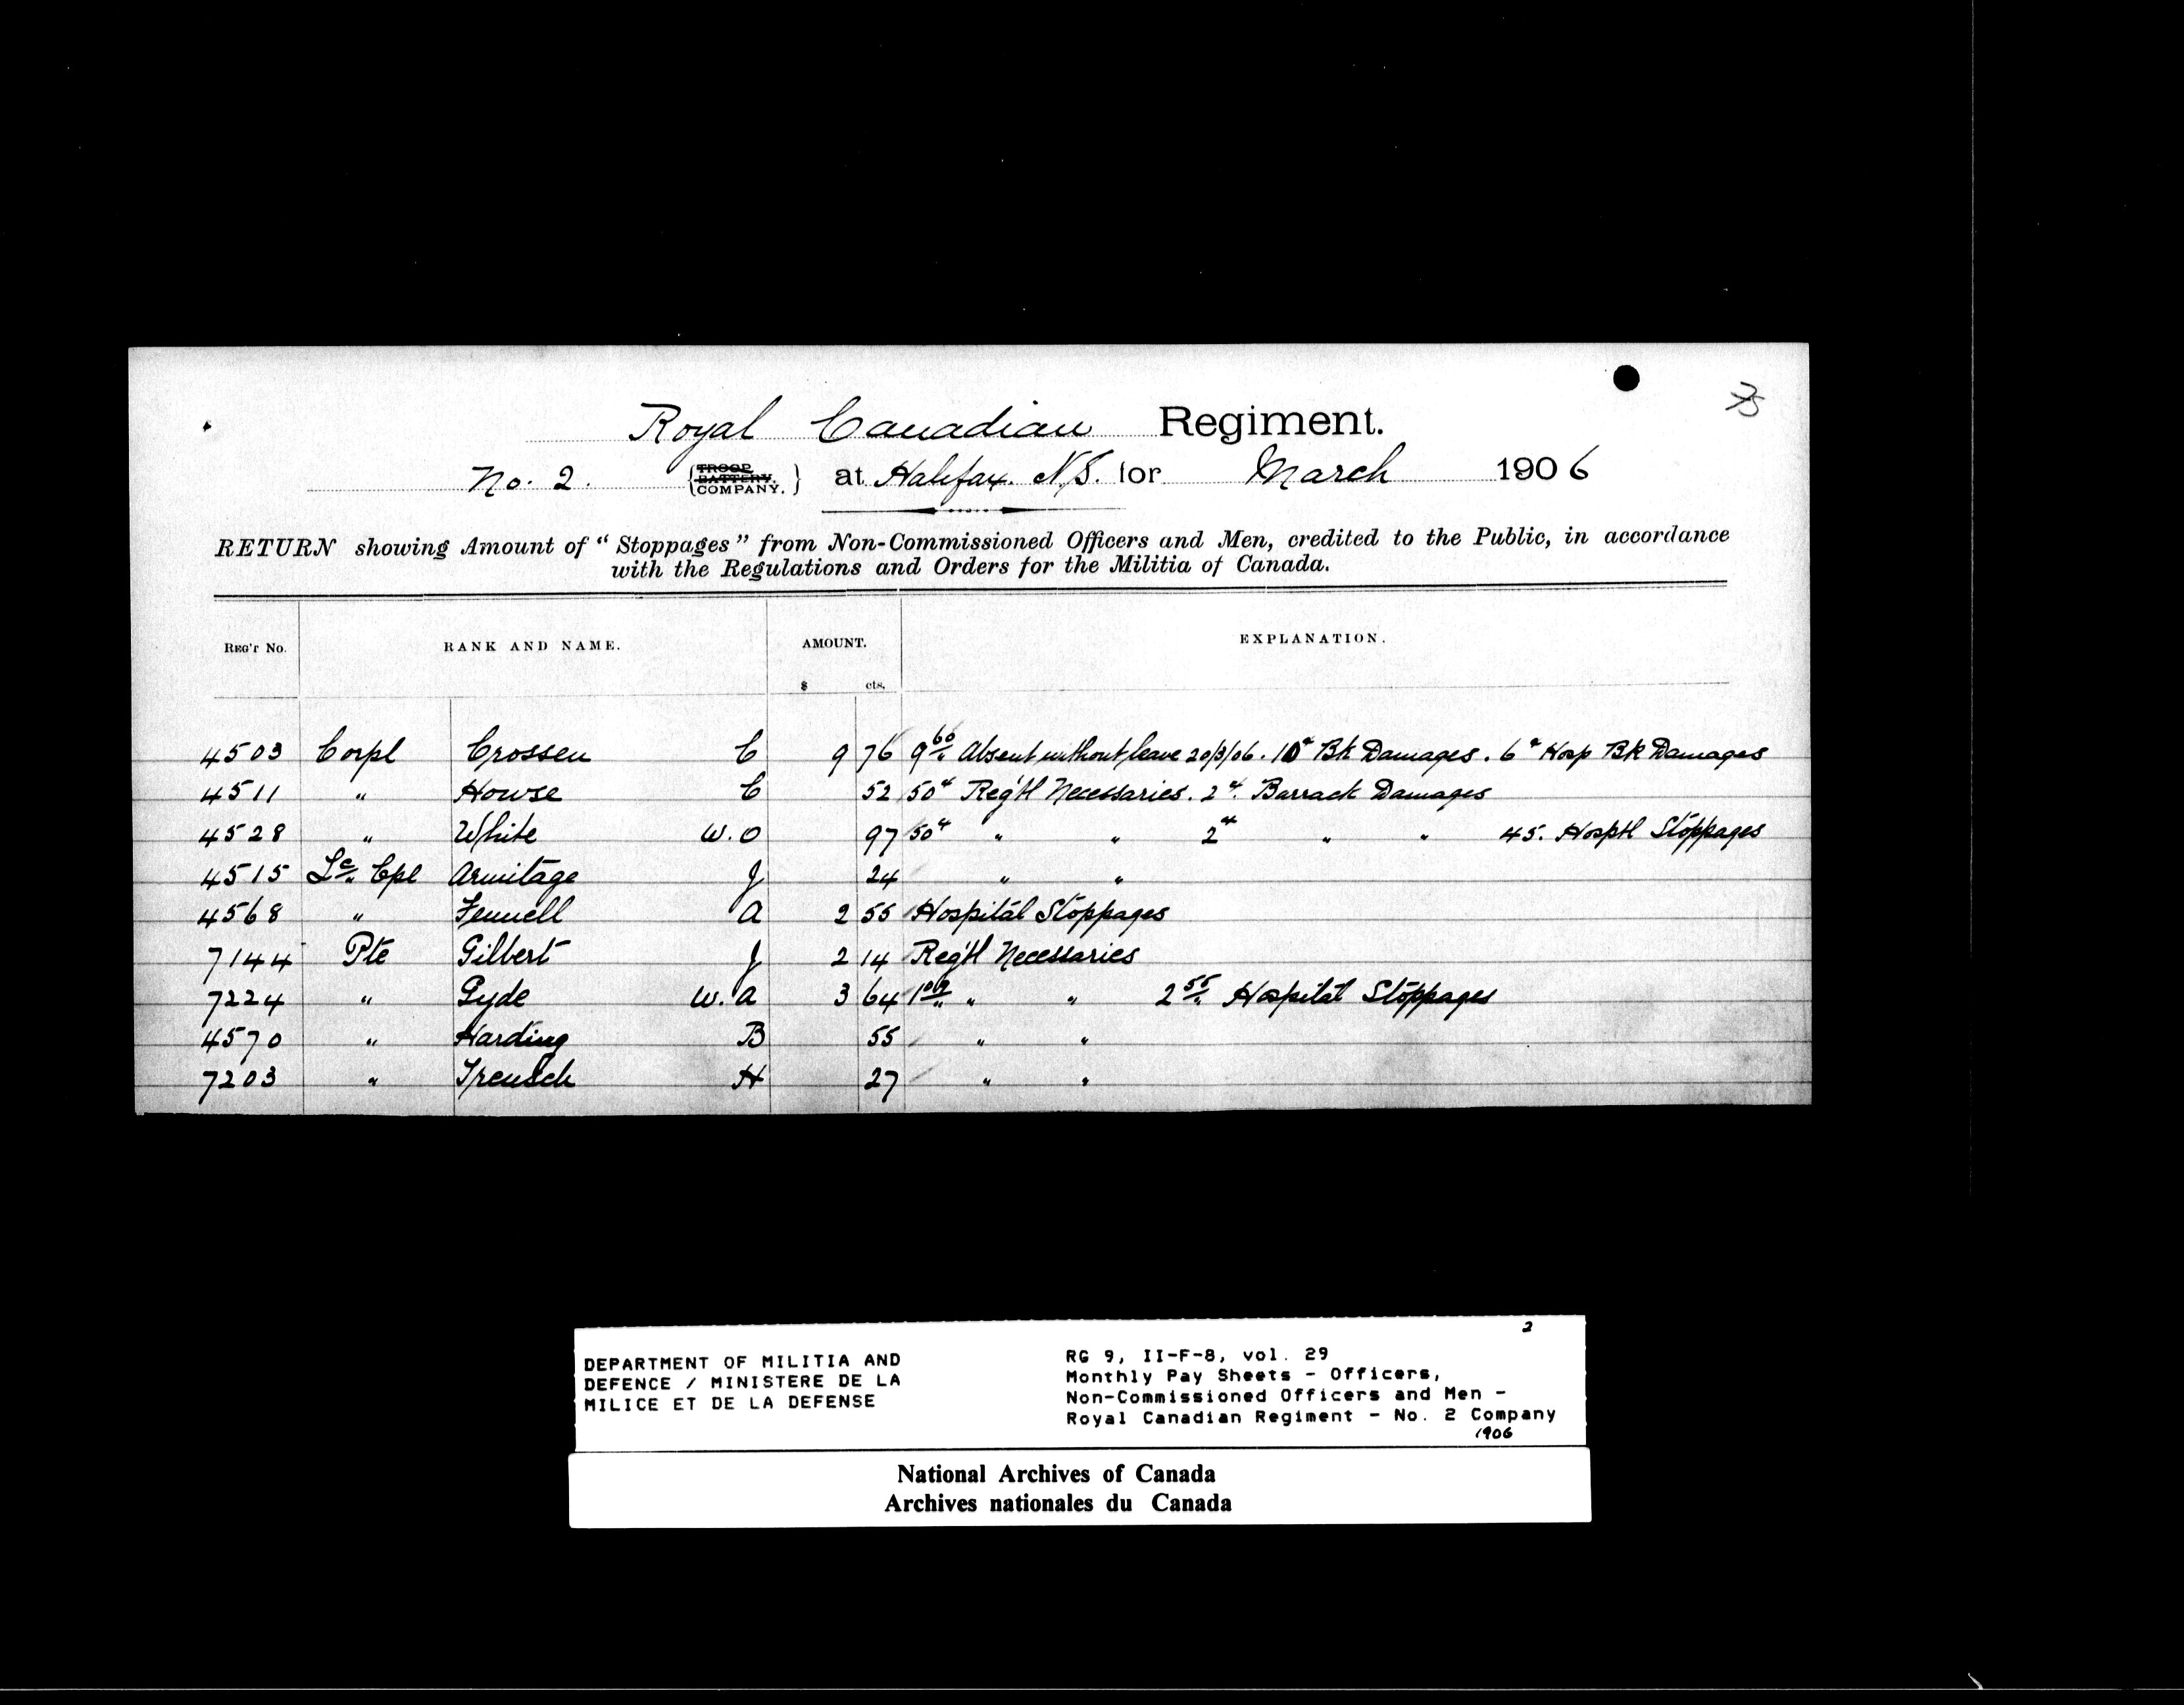 75
Royal Canadian Regiment.
No. 2. {TROOP. BATTERY. COMPANY.} at Halifax. N.S. for March 1906
RETURN showing Amount of "Stoppages" from Non-Commissioned Officers and Men, credited to the Public, in accordance
with the Regulations and Orders for the Militia of Canada.
REG'T No. RANK AND NAME. AMOUNT. EXPLANATION.
$ cts.
4503 Corpl Crossen C 9 76 9 60 Absent without leave 20/3/06. 10¢ Bk Damages. 6¢ Hosp Bk Damages
4511 " Howse C 52 50¢ Reg'tl Necessaries. 2¢. Barrack Damages
4528 " White W. O 97 50¢ " " 2¢ " " 45. Hosptl Stoppages
4515 Lc. Cpl Armitage J 24 " "
4568 " Fennell A 2 55 Hospital Stoppages
7144 Pte Gilbert J 2 14 Reg'tl Necessaries
7224 " Gyde W. A 3 64 1 09 " " 2 55 Hospital Stoppages
4570 " Harding B 55 " "
7203 " H 27 " "
2
DEPARTMENT OF MILITIA AND
DEFENCE / MINISTERE DE LA
MILICE ET DE LA DEFENSE
RG 9, II-F-8, vol. 29
Monthly Pay Sheets - Officers,
Non-Commissioned Officers and Men -
Royal Canadian Regiment - No. 2 Company
1906
National Archives of Canada
Archives nationales du Canada